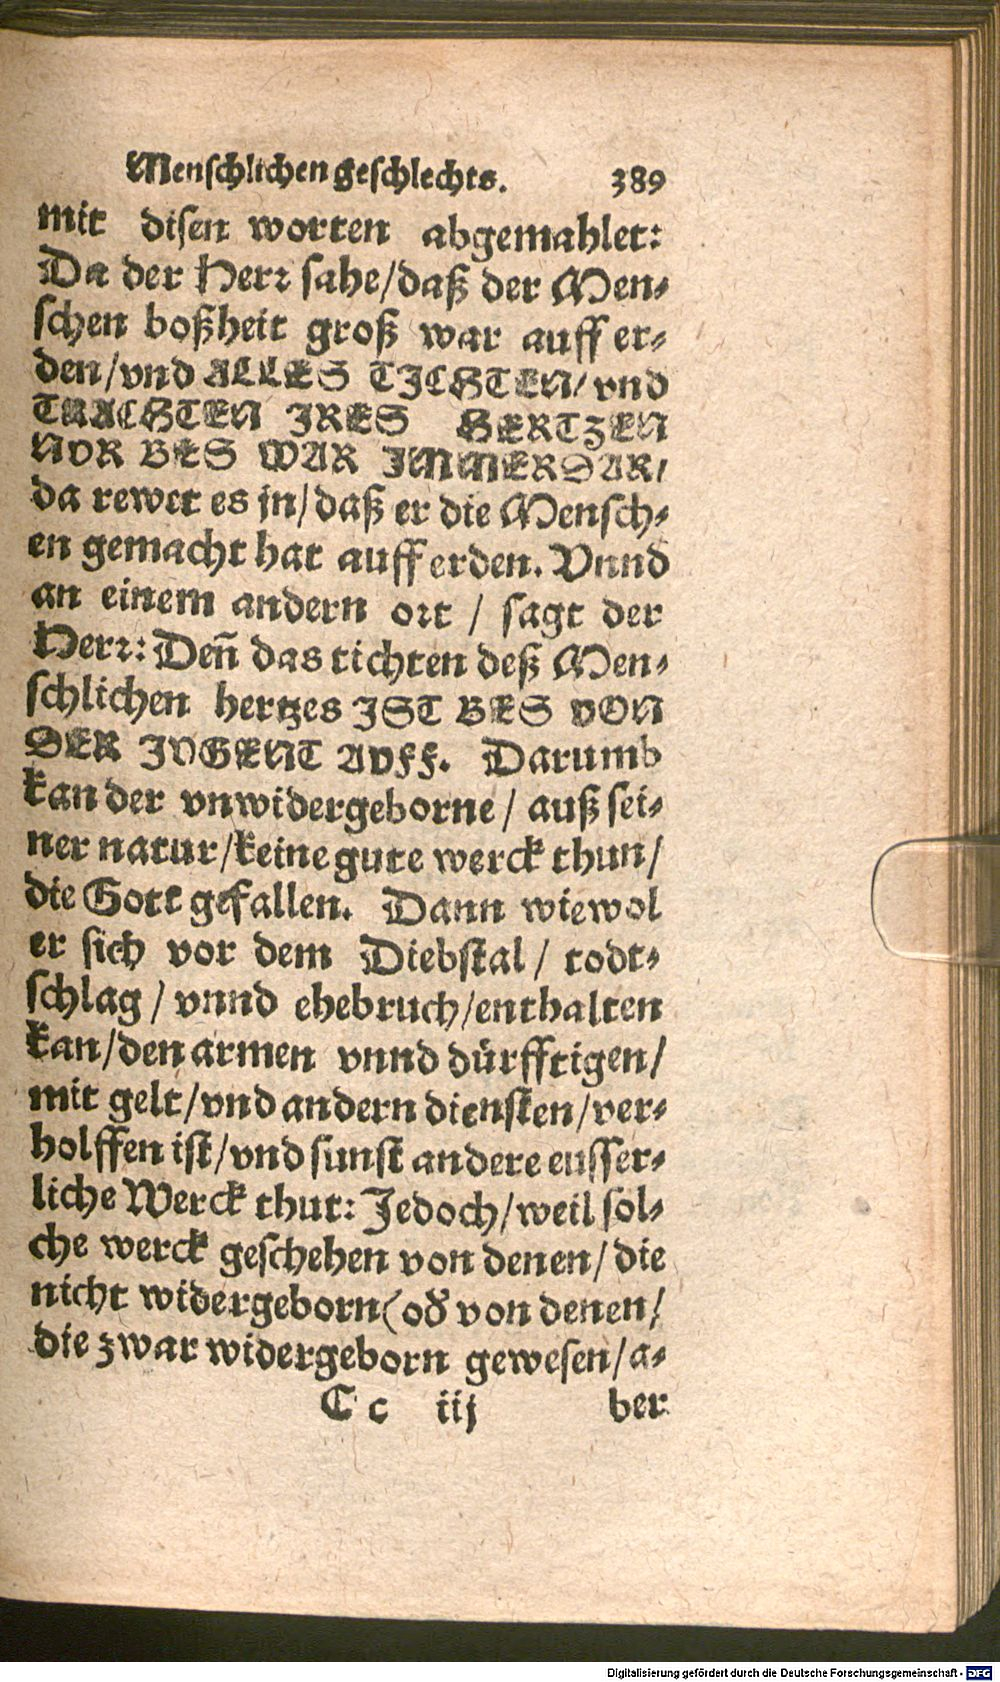 Menschlichen geschlechts. 389
mit disen worten abgemahlet:
Da der Herr sahe/daß der Men-
schen boßheit groß war auff er-
den/vnd ALLES TICHTEN/ vnd
TRACHTEN IRES HERTZEN
NVR BES WAR IMMERDAR/
da rewet es jn/daß er die Mensch-
en gemacht hat auff erden. Vnnd
an einem andern ort / sagt der
Herr: Deñ das tichten deß Men-
schlichen hertzes IST BES VON
DER IVGENT AVFF. Darumb
kan der vnwidergeborne / auß sei-
ner natur/keine gute werck thun/
die Gott gefallen. Dann wiewol
er sich vor dem Diebstal / todt-
schlag / vnnd ehebruch/enthalten
kan/den armen vnnd dürfftigen/
mit gelt/vnd andern diensten/ver-
holffen ist/vnd sunst andere eusser-
liche Werck thut: Jedoch/weil sol-
che werck geschehen von denen/die
nicht widergeborn (oď von denen/
die zwar widergeborn gewesen/a-
C c iij ber
Digitalisierung gefördert durch die Deutsche Forschungsgemeinschaft - DFG